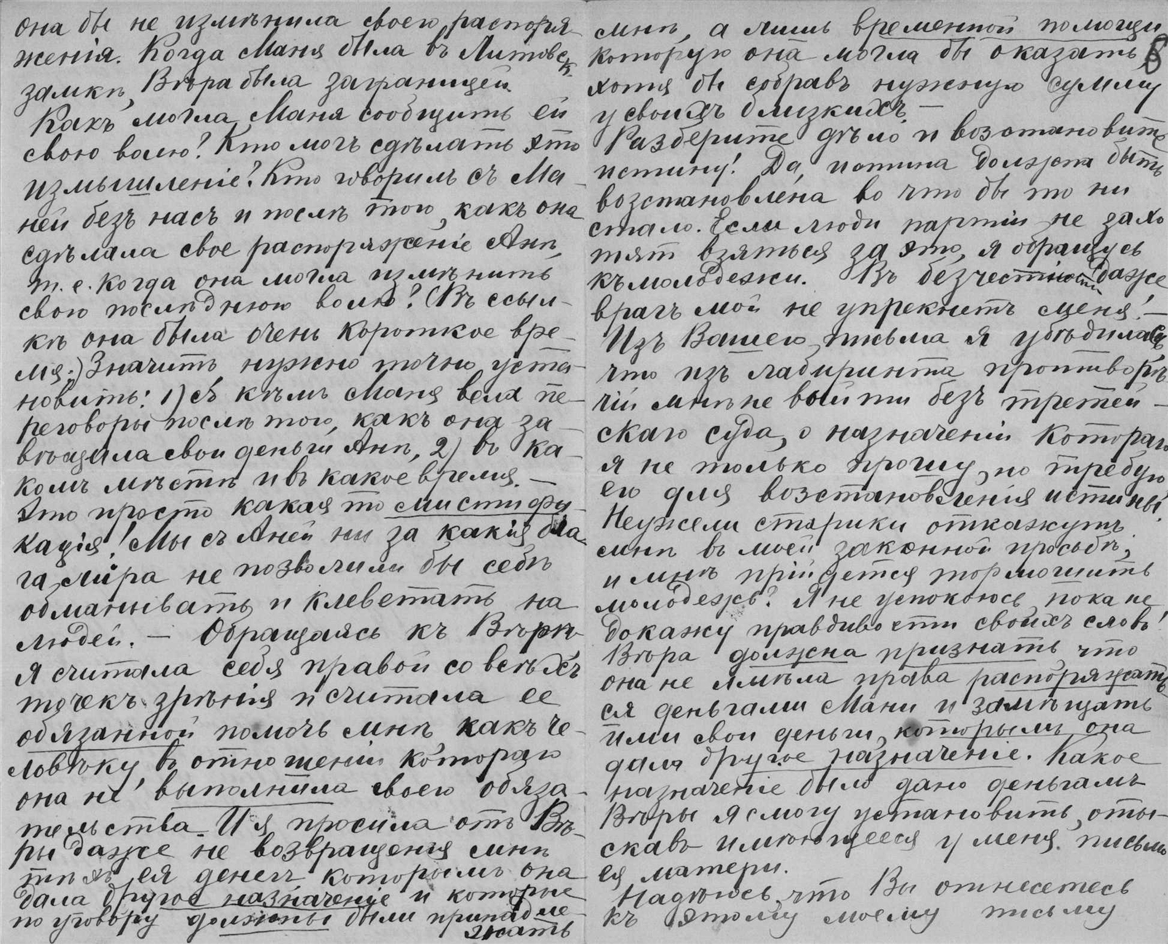 она бы не измѣнила своего распоря
женія. Когда Маня была въ Литовск.
замкѣ, Вѣра была заграницей
Какъ могла Маня сообщить ей
свою волю? Кто могъ сдѣлать это
измышленіе? Кто говорилъ съ Ма-
ней безъ насъ и послѣ того, какъ она
сдѣлала свое распоряженіе Анѣ,
т.е. когда она могла измѣнить
свою послѣднюю волю? (Въ ссыл-
кѣ она была очень короткое вре-
мя.) Значитъ нужно точно уста-
новить: 1) съ кѣмъ Маня вела пе-
реговоры послѣ того, какъ она за-
вѣщала свои деньги Анѣ, 2) въ ка-
комъ мѣстѣ и въ какое время. —
Это просто какая то мистифи-
кація! Мы съ Аней ни за какія бла-
га міра не позволили бы себѣ
обманывать и клеветать на
людей. — Обращаясь къ Вѣрѣ
я считала себя правой со всѣхъ
точекъ зрѣнія и считала ее
обязанной помочь мнѣ какъ че-
ловѣку, въ отношеніи котораго
она не выполнила своего обяза-
тельства. И я просила отъ Вѣ-
ры даже не возвращенія мнѣ
тѣхъ ея денег которымъ она
дала другое назначеніе и которые
по уговору должны были принадле-
жать
мнѣ, а лишь временной помощи
которую она могла бы оказать
8
хотя бы собравъ нужную сумму
у своихъ близкихъ. —
Разберите дѣло и возстановите
истину! Да, истина должна быть
возстановлена во что бы то ни
стало. Если люди партіи не захо
тят взяться за это, я обращусь
къ молодежи. Въ безчестности даже
врагъ мой не упрекнетъ меня! —
Изъ Вашего письма я убѣдилась
что изъ лабиринта противорѣ-
чій мнѣ не выйти безъ третей-
скаго суда, о назначеніи котораго
я не только прошу, но требую
его для возстановленія истины!
Неужели старики откажутъ
мнѣ въ моей законной просьбѣ,
и мнѣ прійдется тормошить
молодежь? Я не успокоюсь, пока не
докажу правдивости своихъ словъ!
Вѣра должна признать что
она не имѣла права распоряжать
ся деньгами Мани и замѣщать
ими свои деньги, которымъ она
дала другое назначеніе. Какое
назначеніе было дано деньгамъ
Вѣры я смогу установить, оты-
скавъ имѣющееся у меня письмо
ея матери.
Надѣюсь, что Вы отнесетесь
къ этому моему письму